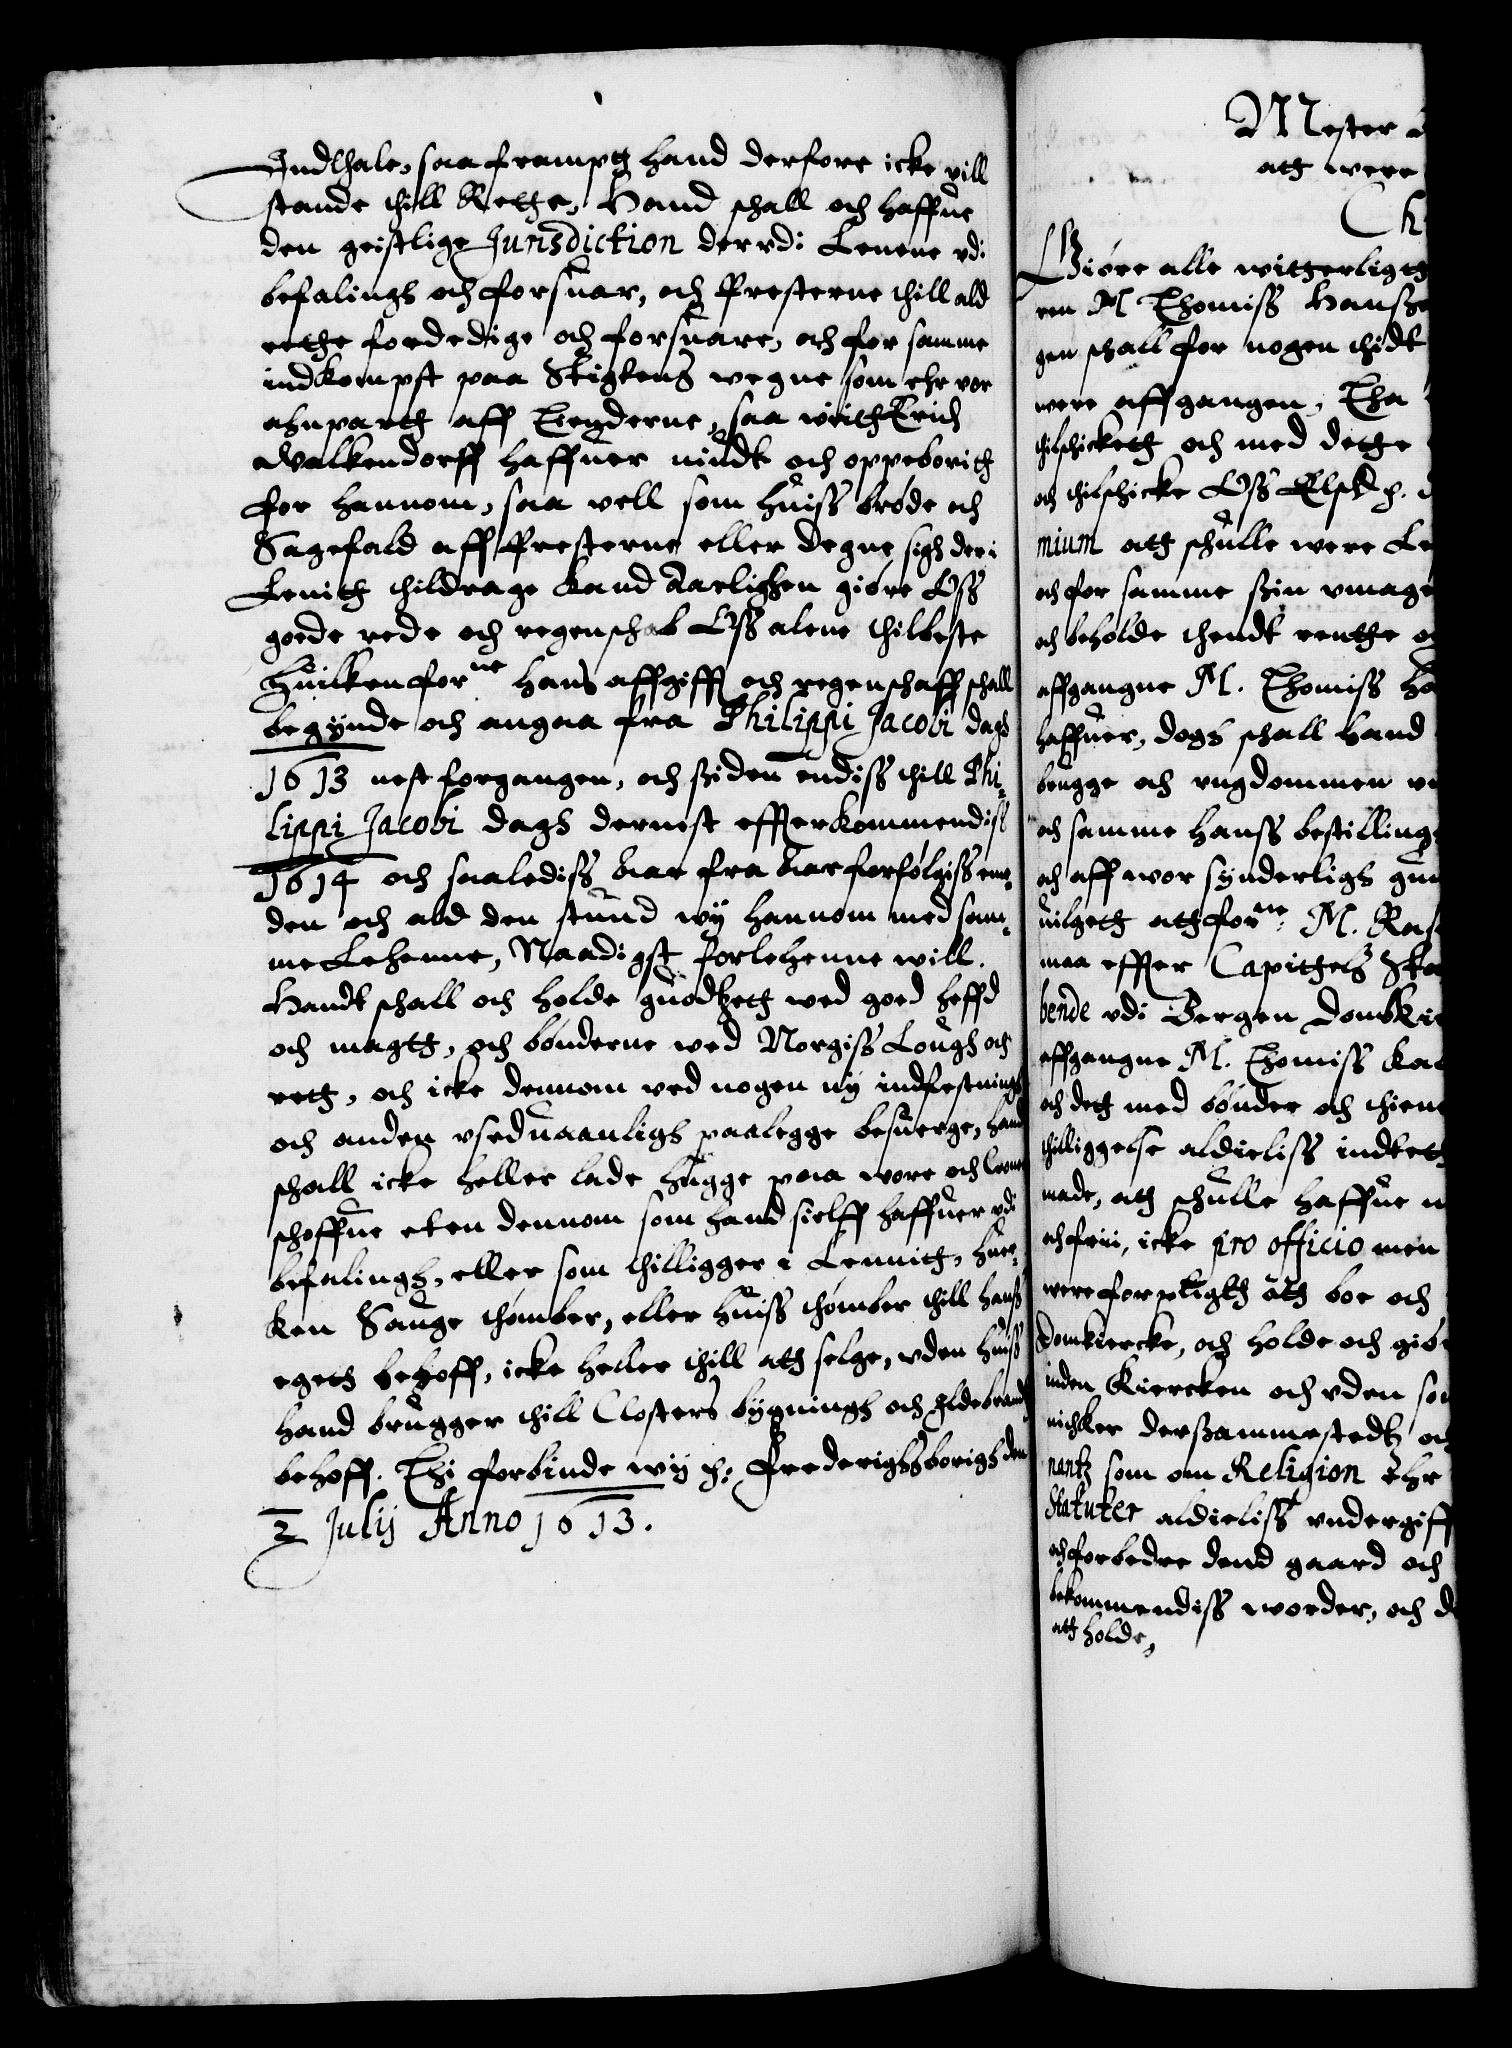 Indthale, saa frampt hand derfore icke vill
stande thill Rette, Hand schall och haffue
den geistlige Jurisdiction der vdi Lenene vdi
befalings och forsuar, och Presterne thill ald
rette fordedige och forsuare, och for samme
indkompst paa Stigtens wegne som ehr vor
anpart aff Tienderne, saa wiit Erich
Walkendorff haffuer nudt och oppeborith
for hannom, saa vell som huiss brøde och
Sagefald aff Presterne eller degne sigh der i
Lenith thildrage kand Aarlighen giøre Oss
goede rede och regenschab Oss alene thilbeste
Huilken forne hans affgifft och regenschaff schall
begynde och angaa fra Philippi Jacobi dagh
1613 nest forgangen, och siden endiss thill Phi-
lippi Jacobi dagh dernest effterkommendiss
1614 och saalediss Aar fra Aar forfølgiss en-
den och ald den stund wij hannom med sam-
me Lehenne, Naadigst forlehenne will.
Handt schall och holde guodtzet wed goed heffd
och magtt, och bønderne wed Norgiss Lough och
rett, och icke dennom ved nogen ny indfestningh
och anden vseduaanligh paalegge besuerge, hand
schall icke heller lade hugge paa wore och Cronens
schoffue eten dennom som hand sielff haffuer vdi
befalingh, eller som thilligger i Lennith, huer-
ken Sauge thømber, eller huiss thømber thill hanss
eget behoff, icke heller thill ath selge, vden huiss
hand brugger thill Closters bygningh och Ildebrands
behoff. Thi forbinde wij p. Frederighsborigh den
2 Julij Anno 1613.
Mester
att were
Ch
Giøre alle witterligtt
ren M Thomiss Hansse
gen schall for nogen thidt
were affgangen, Tha
thilschicket och med dette
och thilschicke Oss Elsk. p.
mium att schulle were Le
och for samme sin vmage
och beholde thendt rentte
affgangne M. Thomiss Ha
haffuer, dogh schall hand
brugge och vngdommen
och samme hanss bestilling
och aff wor synderligh gun
uilget att forne M. Ras
maa effter Capittels Sta
bende vdi Bergen Domkie
affgangne M. Thomiss
och dett med bønder och thien
thilliggelse aldieliss indtet
made, att schulle haffue
och frii, icke pro officio men
were forpligtth ath boe och
Domkiercke, och holde och giøre
inden Kiercken och vden som
nichker dersammestedtz
nantz som om Religion ehr
Statuter aldieliss vndergiff
och forbedre dend gaard och
bekommendiss worder, och
att holde,